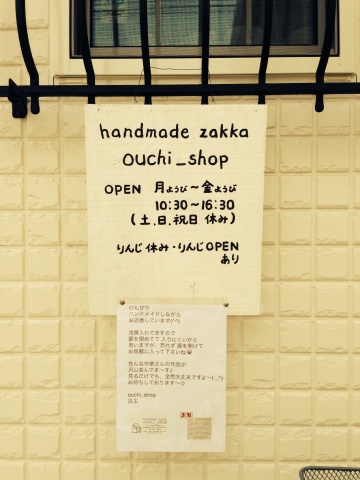 handmade zakka
ouchi_shop
OPEN 月ようび～金ようび
10:30～16:30
(土.日.祝日 休み)
りんじ休み・りんじOPEN
あり
のんびり
ハンドメイドしながら
お店番しています(^^)
冷房入れてますので
扉を閉めてて入りにくいかと
思いますが、恐れず扉を開けて
お気軽に入って下さいね
色んな作家さんの作品が
沢山並んでま～す♪
見るだけでも、全然大丈夫ですよ～(-_^)
お待ちしております～☆
ouchi_shop
店主